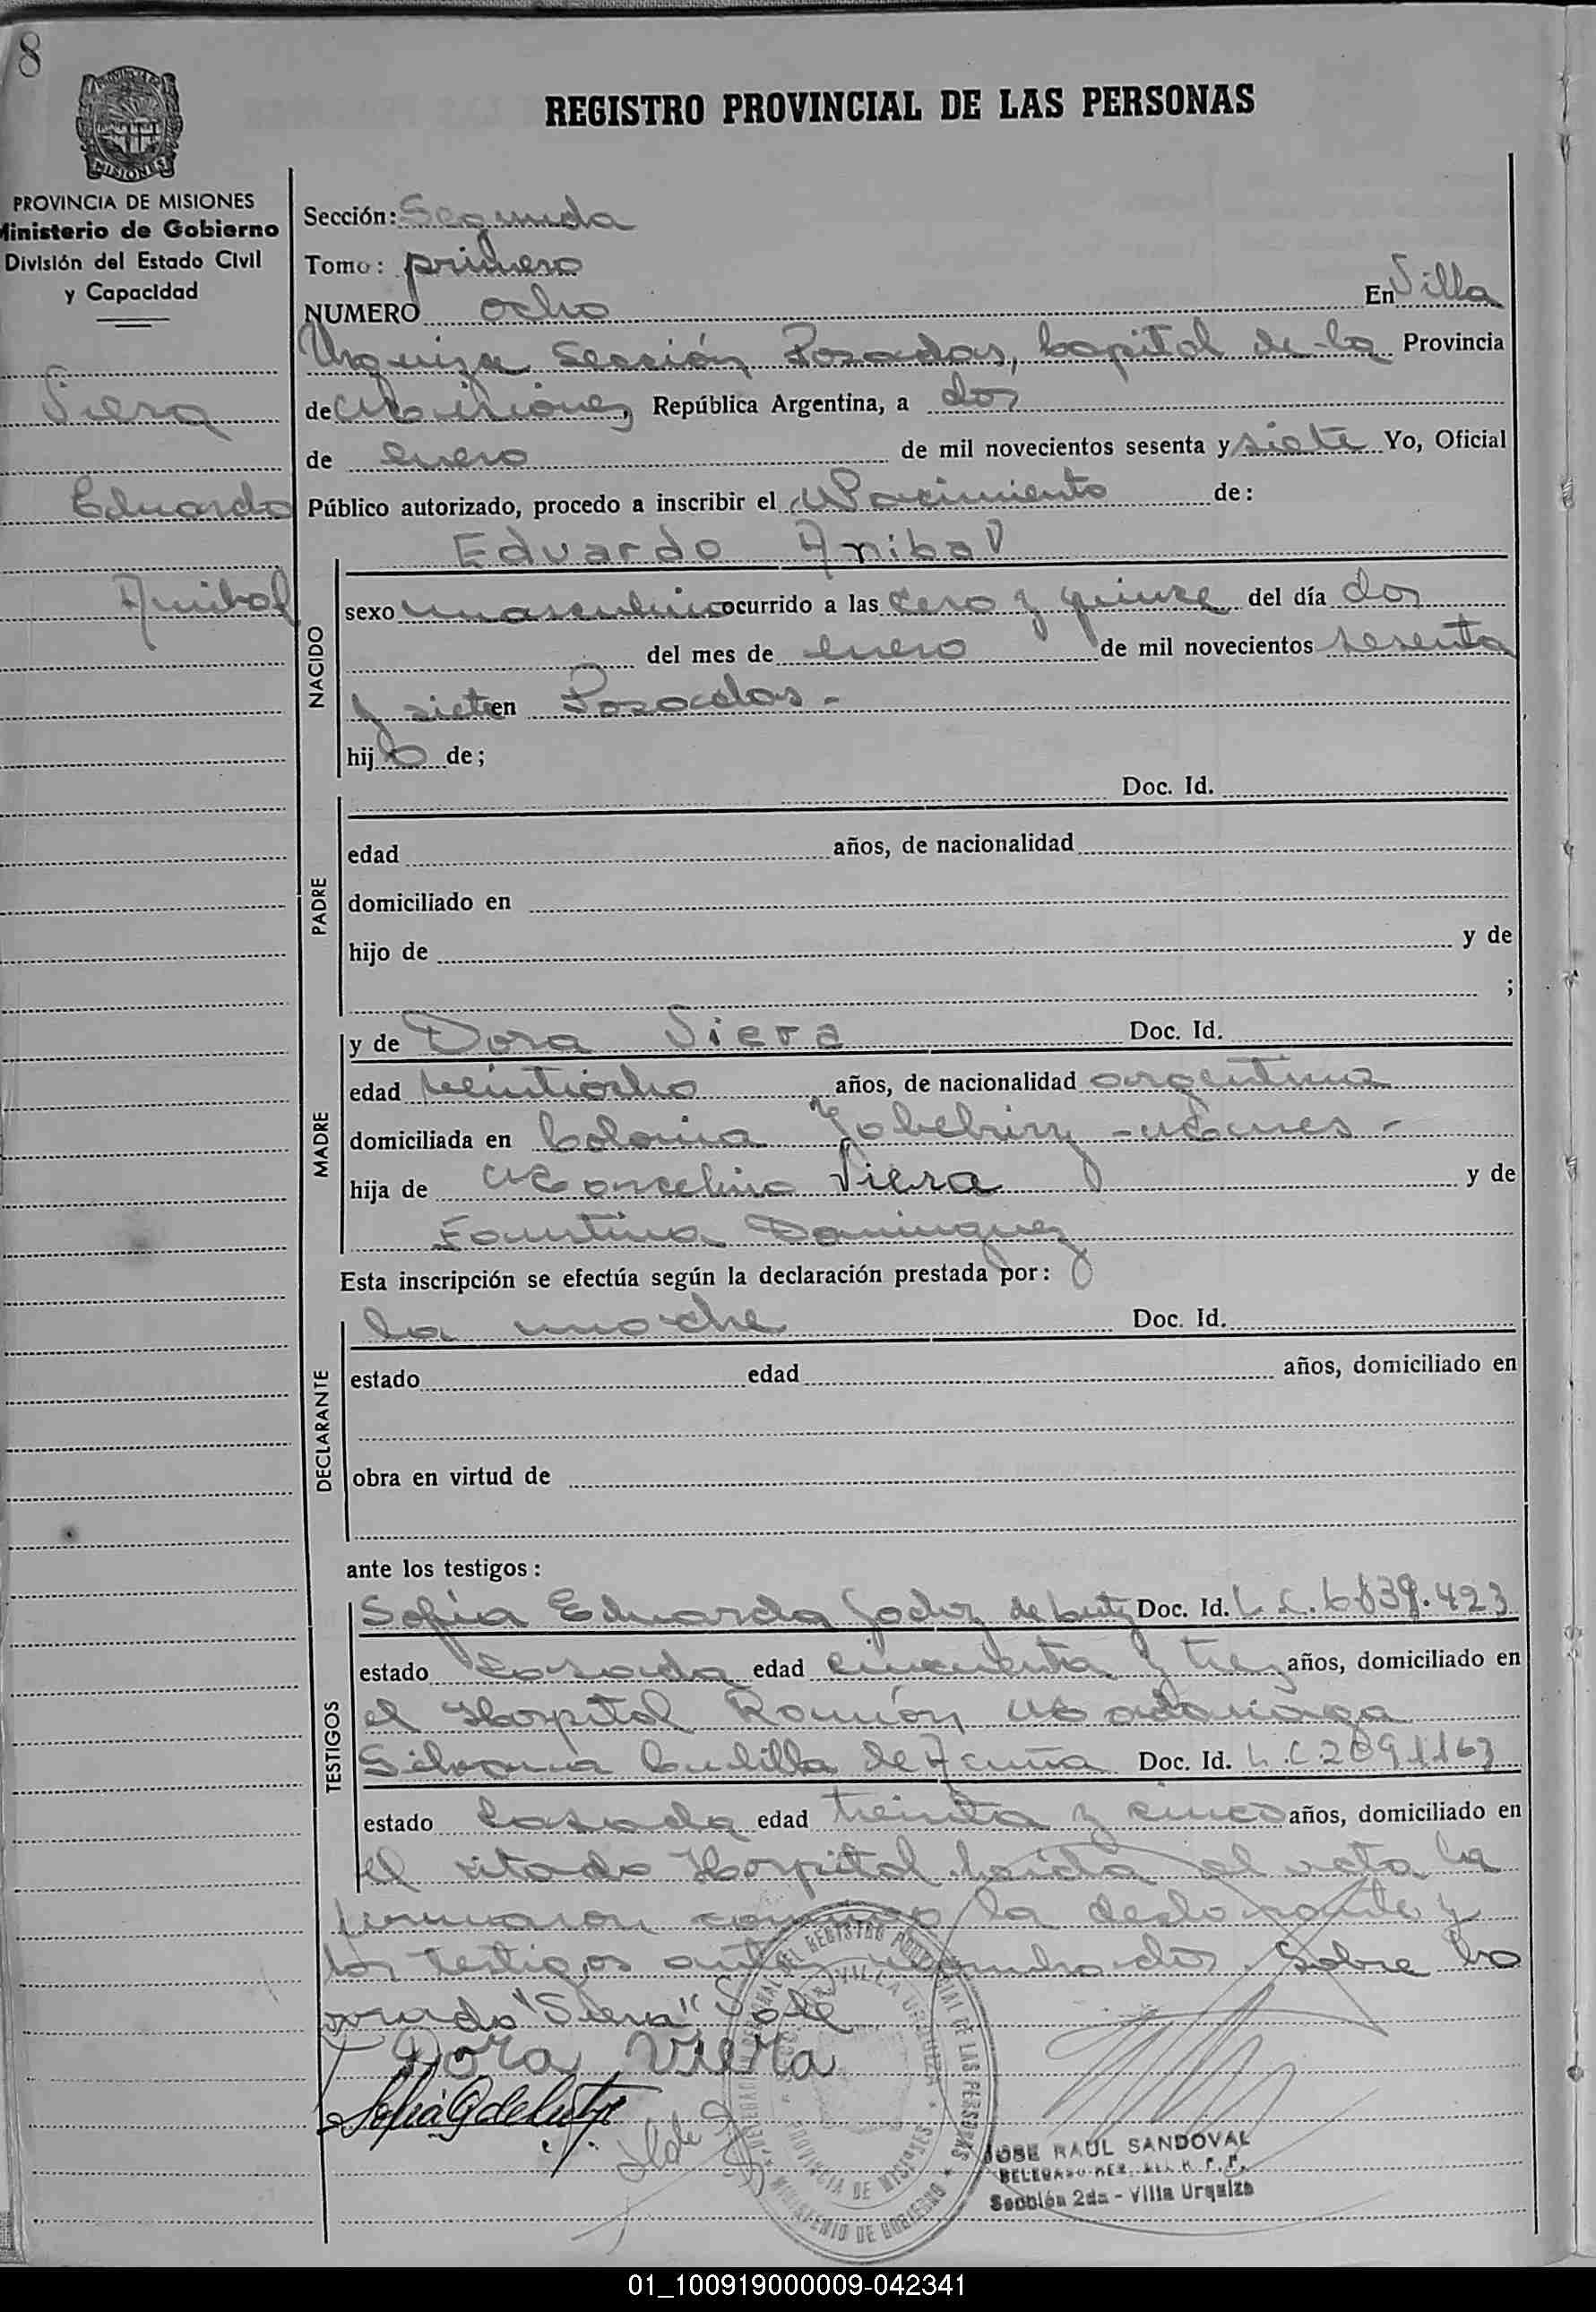 8
REGISTRO PROVINCIAL DE LAS PERSONAS
MISIONES
PROVINCIA DE MISIONES
Ministerio de Gobierno
División del Estado Civil
y Capacidad
Viera
Eduardo
Anibal
Sección: Segunda
Tomo: primero
NUMERO ocho En Villa
Urquiza Sección Posadas, Capital de la Provincia
de Misiones, República Argentina, a dos
de enero de mil novecientos sesenta y siete Yo, Oficial
Público autorizado, procedo a inscribir el Nacimiento de:
Eduardo Anibal
NACIDO
sexo masculino ocurrido a las cero y quinze del día dos
del mes de enero de mil novecientos sesenta
y siete en Posadas -
hijo de;
PADRE
Doc. Id.
edad años, de nacionalidad
domiciliado en
hijo de y de
;
MADRE
y de Dora Viera Doc. Id.
edad veintiocho años, de nacionalidad argentina
domiciliada en Colonia - Mnes -
hija de Marcelino Viera y de
Faustina Dominguez
Esta inscripción se efectúa según la declaración prestada por:
DECLARANTE
la madre Doc. Id.
estado edad años, domiciliado en
obra en virtud de
ante los testigos:
TESTIGOS
Sofia Eduarda Godoy de Lutz Doc. Id. L.C. 6839.423
estado Casada edad cincuenta y tres años, domiciliado en
el Hospital Ramón Madariaga
Silvania de Acuña Doc. Id. L.C 2891163
estado Casada edad treinta y cinco años, domiciliado en
el citado Hospital leida el acta la
firmaron conmigo la declarante y
los testigos antes nombrados. Sobre bo
rrado "Viera" Vale
Dora Viera
Sofia G de Lutz
DELEGACION DEL REGISTRO PROVINCIAL DE LAS PERSONAS
VILLA URQUIZA
PROVINCIA DE MISIONES
MINISTERIO DE GOBIERNO
JOSE RAUL SANDOVAL
Sección 2da - Villa Urquiza
01_100919000009-042341